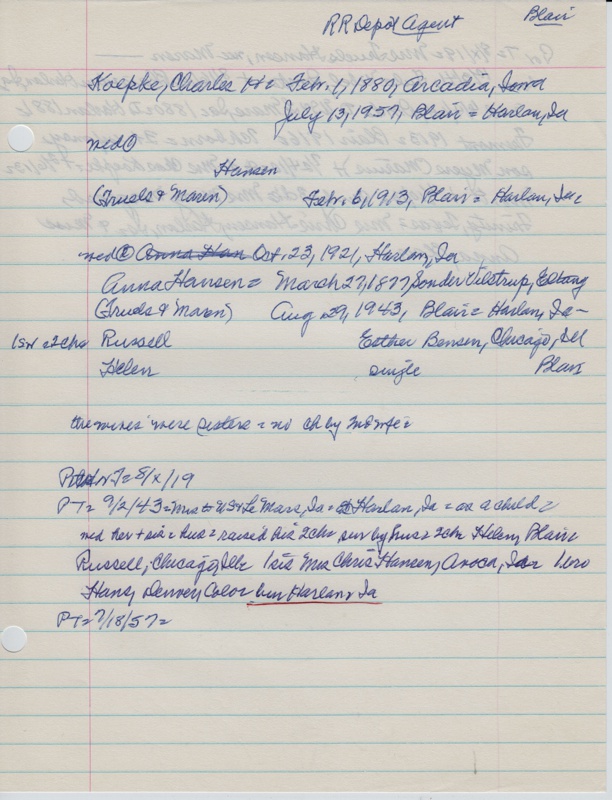 RR Depot Agent Blair
Koepke, Charles H = Feb. 1, 1880, Arcadia, Iowa
July 13, 1957, Blair = Harlan, Ia
md ①
Hansen
(Truels & Maren) Febr. 6, 1913, Blair = Harlan, Ia =
md ② Anna Han Oct. 23, 1921, Harlan, Ia
Anna Hansen = March 27, 1877, Sonder Vilstrup,
(Truds & Maren) Aug 29, 1943, Blair = Harlan, Ia -
1sr = 2 chr Russell Esther Bensen, Chicago, Ill
Helen single Blair
the wives were sisters = no ch by 2nd wife =
8/x/19
PT = 9/2/43 = Mrs to US & Le Mars, Ia = Harlan, Ia = as a child =
md her sis hus = raised his 2 chr sur by hus 2 chr Helen, Blair
Russell, Chicago, Ill 1 sis Mrs Chris Hansen, Avoca, Ia = 1 bro
Hans, Denver, Color bur Harlan, Ia
PT = 7/18/57 =